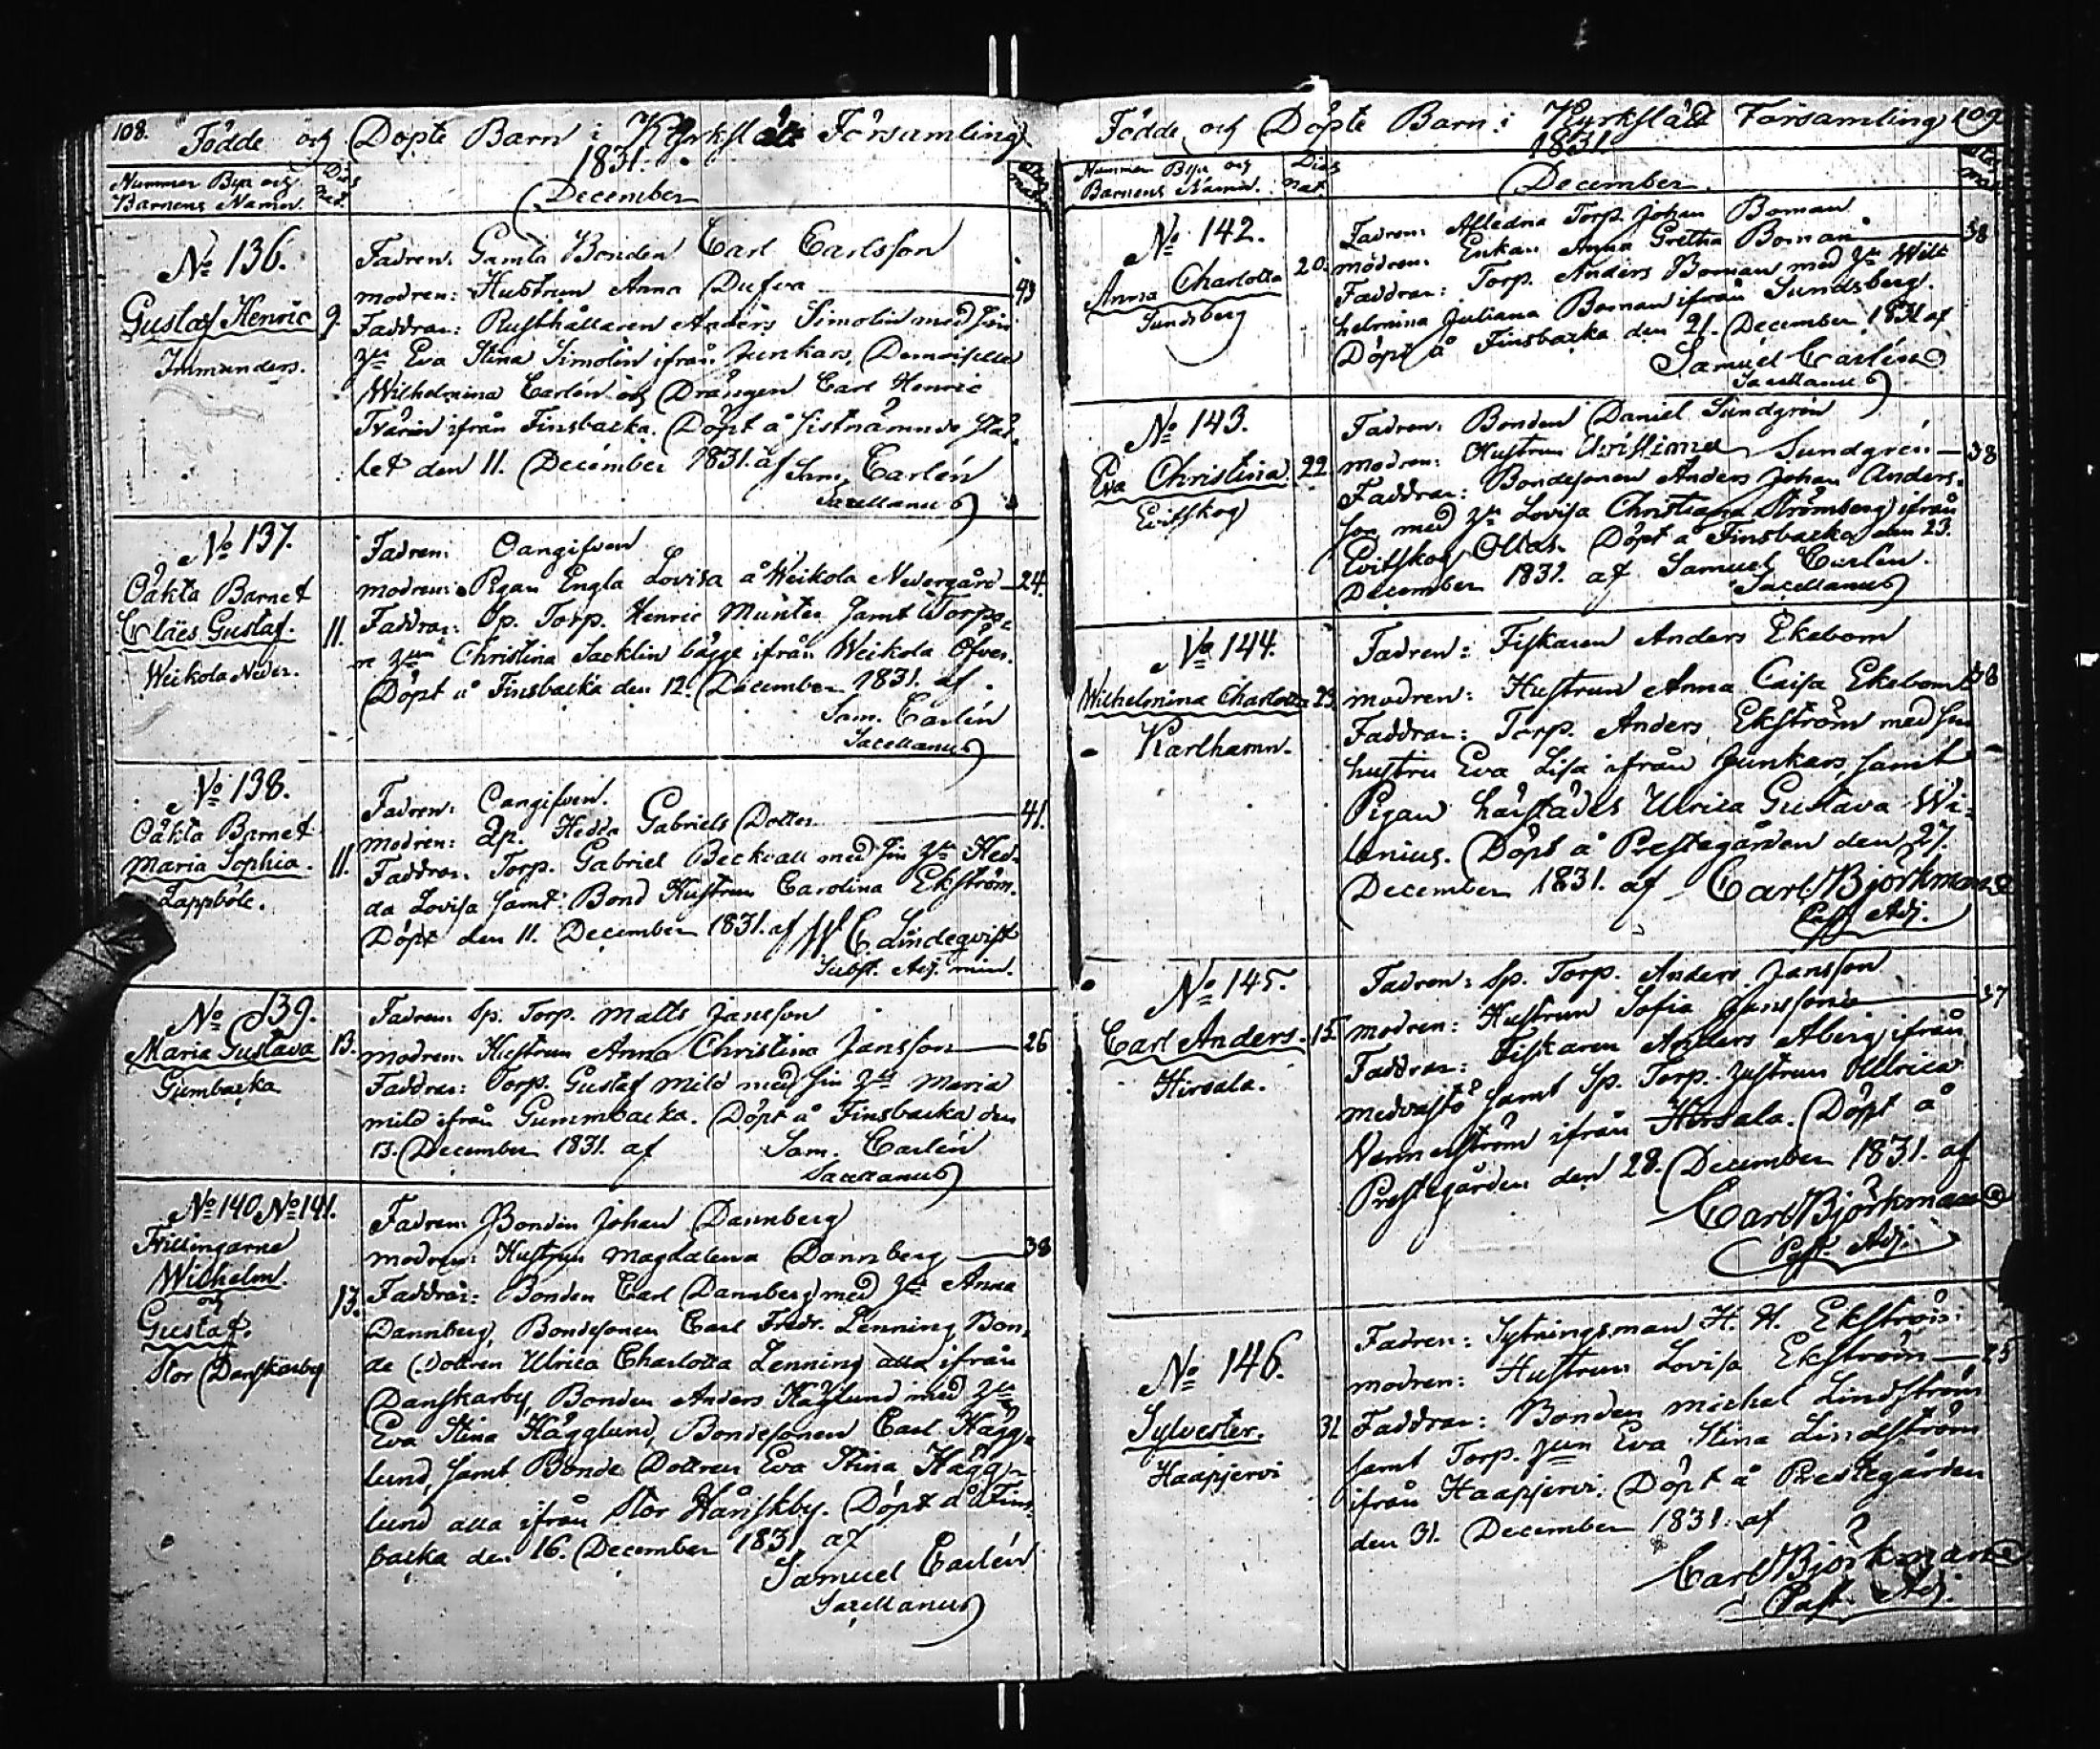 108. Födde och Döpte Barn i Kyrkslätt Församling
1831.
Nummer Byn och Barnens Namn.
Dies nat.
December
No 136.
Gustaf Henric 9.
Immunders.
Fadren: Gamla Bonden Carl Carlsson
modren: Hustrun Anna Dufva 43
Faddrar: Rusthållaren Anders Simolin med sin
Eva Stina Simolin ifrån Junkars, Demoiselle
Wilhelmina Carlén och Drängen Carl Henric
ifrån Finsbacka. Döpt å sistnämnde stäl-
let den 11. December 1831. af Sam. Carlén
Sacellanus
No 137.
Oäkta Barnet
Claes Gustaf. 11.
Weikola Neder.
Fadren: Oangifven
modren: Pigan Engla Lovisa å Weikola Nedergård 24.
Faddrar: Sp. Torp. Henric Munter samt Torpa-
re Christina Sacklin bägge ifrån Weikola Öfver.
Döpt å Finsbacka den 12. December 1831. af
Sam. Carlén
Sacellanus
No 138.
Oäkta Barnet
Maria Sophia. 11.
Lappböle.
Fadren: Oangifven.
modren: Hedda Gabriels Dotter 41.
Faddrar: Torp. Gabriel Beckvall med sin Hed-
da Lovisa samt Bond Hustrun Carolina Ekström.
Döpt den 11. December 1831. af Lindeqvist
Subst. Adj. min.
No 139.
Maria Gustava 13.
Gumbacka
Fadren: Sp. Torp. Matts Jansson
modren: Hustrun Anna Christina Jansson 26
Faddrar: Torp. Gustaf Mild med sin Maria
Mild ifrån Gummbacka. Döpt å Finsbacka den
13. December 1831. af Sam. Carlén
Sacellanus
No 140. No 141.
Tvillingarne
Wilhelm.
och
Gustaf. 13.
Stor Danskarby
Fadren: Bonden Johan Dannberg
modren: Hustrun Magdalena Dannberg 38
Faddrar: Bonden Carl Dannberg med Anna
Dannberg, Bondesonen Carl Fredr. Lenning, Bon-
de Dottren Ulrica Charlotta Lenning alla ifrån
Danskarby, Bonden Anders Hägglund med
Eva Stina Hägglund, Bondesonen Carl Hägg-
lund, samt Bonde Dottren Eva Stina Hägg-
lund alla ifrån Stor Härskby. Döpt å Fins-
backa den 16. December 1831 af
Samuel Carlén
Sacellanus
Födde och Döpte Barn i Kyrkslätt Församling 109.
1831.
Nummer Byn och Barnens Namn.
Dies nat.
December.
No 142.
Anna Charlotta 20.
Sundsberg
Fadren: Afledna Torp. Johan Boman
modren: Enkan Anna Gretha Boman 38
Faddrar: Torp. Anders Boman med Wil-
helmina Juliana Boman ifrån Sundsberg.
Döpt å Finsbacka den 21. December 1831 af
Samuel Carlén
Sacellanus
No 143.
Eva Christina 22
Evitskog
Fadren: Bonden Daniel Sundgrén
modren: Hustrun Christina Sundgrén 38
Faddrar: Bondesonen Anders Johan Anders-
son med Lovisa Christiana Strömberg ifrån
Evitskog Ollas. Döpt å Finsbacka den 23.
December 1831. af Samuel Carlén.
Sacellanus
No 144.
Wilhelmina Charlotta 23.
Karlhamn.
Fadren: Fiskaren Anders Ekebom
modren: Hustrun Anna Caisa Ekebom 38
Faddrar: Torp. Anders Ekström med sin
hustru Eva Lisa ifrån Junkars, samt
Pigan härstädes Ulrica Gustava Wi-
lenius. Döpt å Prestegården den 27.
December 1831. af Carl Björkman
Past. Adj.
No 145.
Carl Anders. 15
Hirsala.
Fadren: Sp. Torp. Anders Jansson
modren: Hustrun Sofia Jansson 37
Faddrar: Fiskaren Anders Åberg ifrån
Medvastö samt Sp. Torp. Hustrun Ullrica
Vennerström ifrån Hirsala. Döpt å
Prestegården den 28. December 1831. af
Carl Björkman
Past. Adj.
No 146.
Sylvester. 31
Haapjervi
Fadren: Sytningsman H. H. Ekström
modren: Hustrun Lovisa Ekström 25
Faddrar: Bonden Michel Lindström
samt Torp. Eva Stina Lindström
ifrån Haapjervi. Döpt å Prestegården
den 31. December 1831. af
Carl Björkman
Past. Adj.